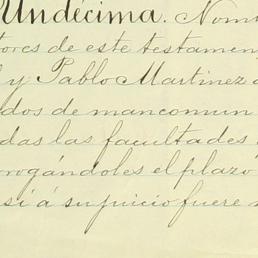 Undécima. Nom
tores de este testamen
y Pablo Martinez
dos de mancomun
das las facultades
rogándoles el plazo
si á su juicio fuere